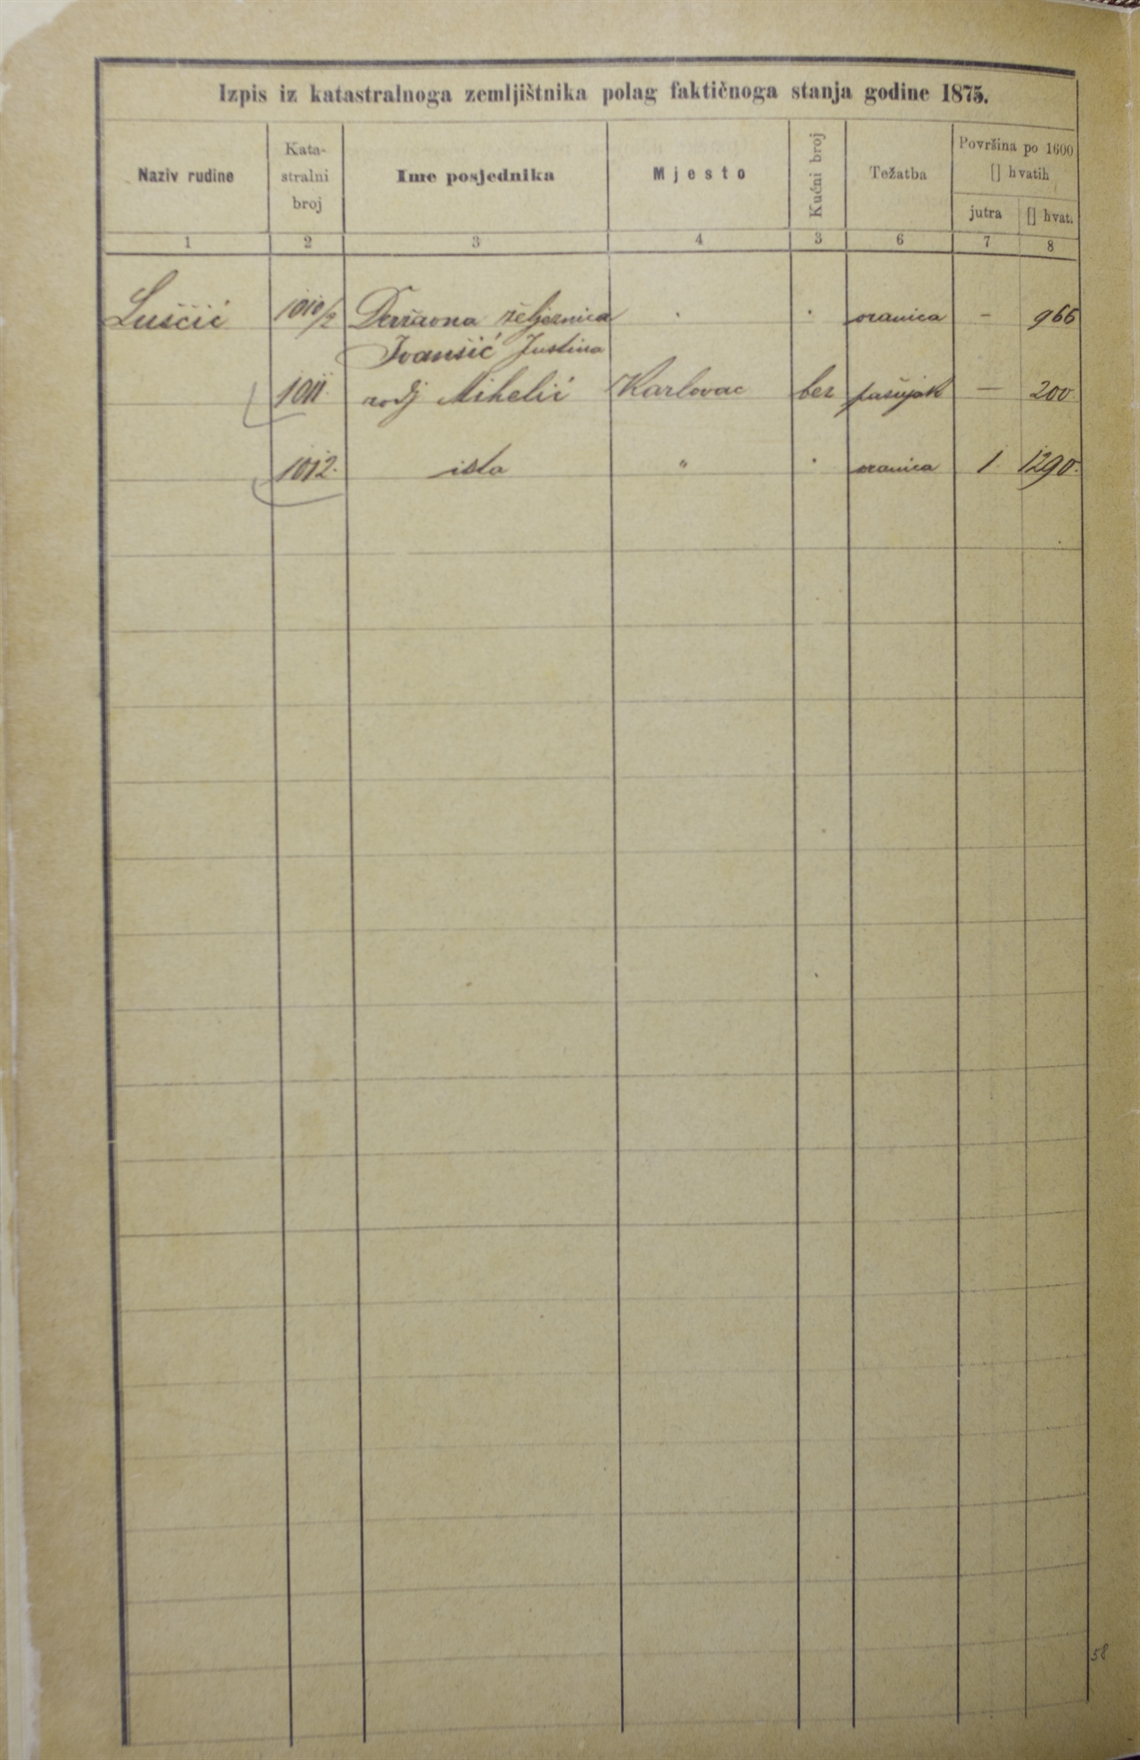 Izpis iz katastralnoga zemljištnika polag faktičnoga stanja godine 1875.
Naziv rudine
Kata-
stralni
broj
Ime posjednika
Mjesto
Kućni broj
Težatba
Površina po 1600
[] hvatih
jutra
[] hvat.
1 2 3 4 3 6 7 8
Luščić 1010/2 Državna željeznica . . oranica - 966
Ivansić Justina
1011. rodj Mihelić Karlovac bez pašnjak — 200
1012. ista " . oranica 1 1290.
58